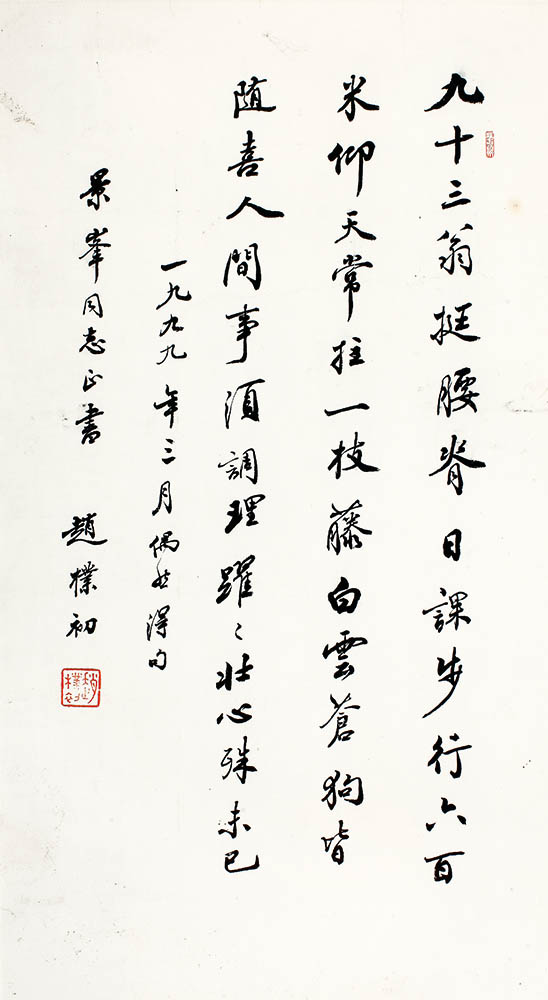 九十三翁挺腰脊日課步行六百
米仰天常拄一枝藤白雲蒼狗皆
随喜人間事須調理躍〻壯心殊未已
一九九九年三月偶然得句
景峯同志正書 趙樸初
趙樸初